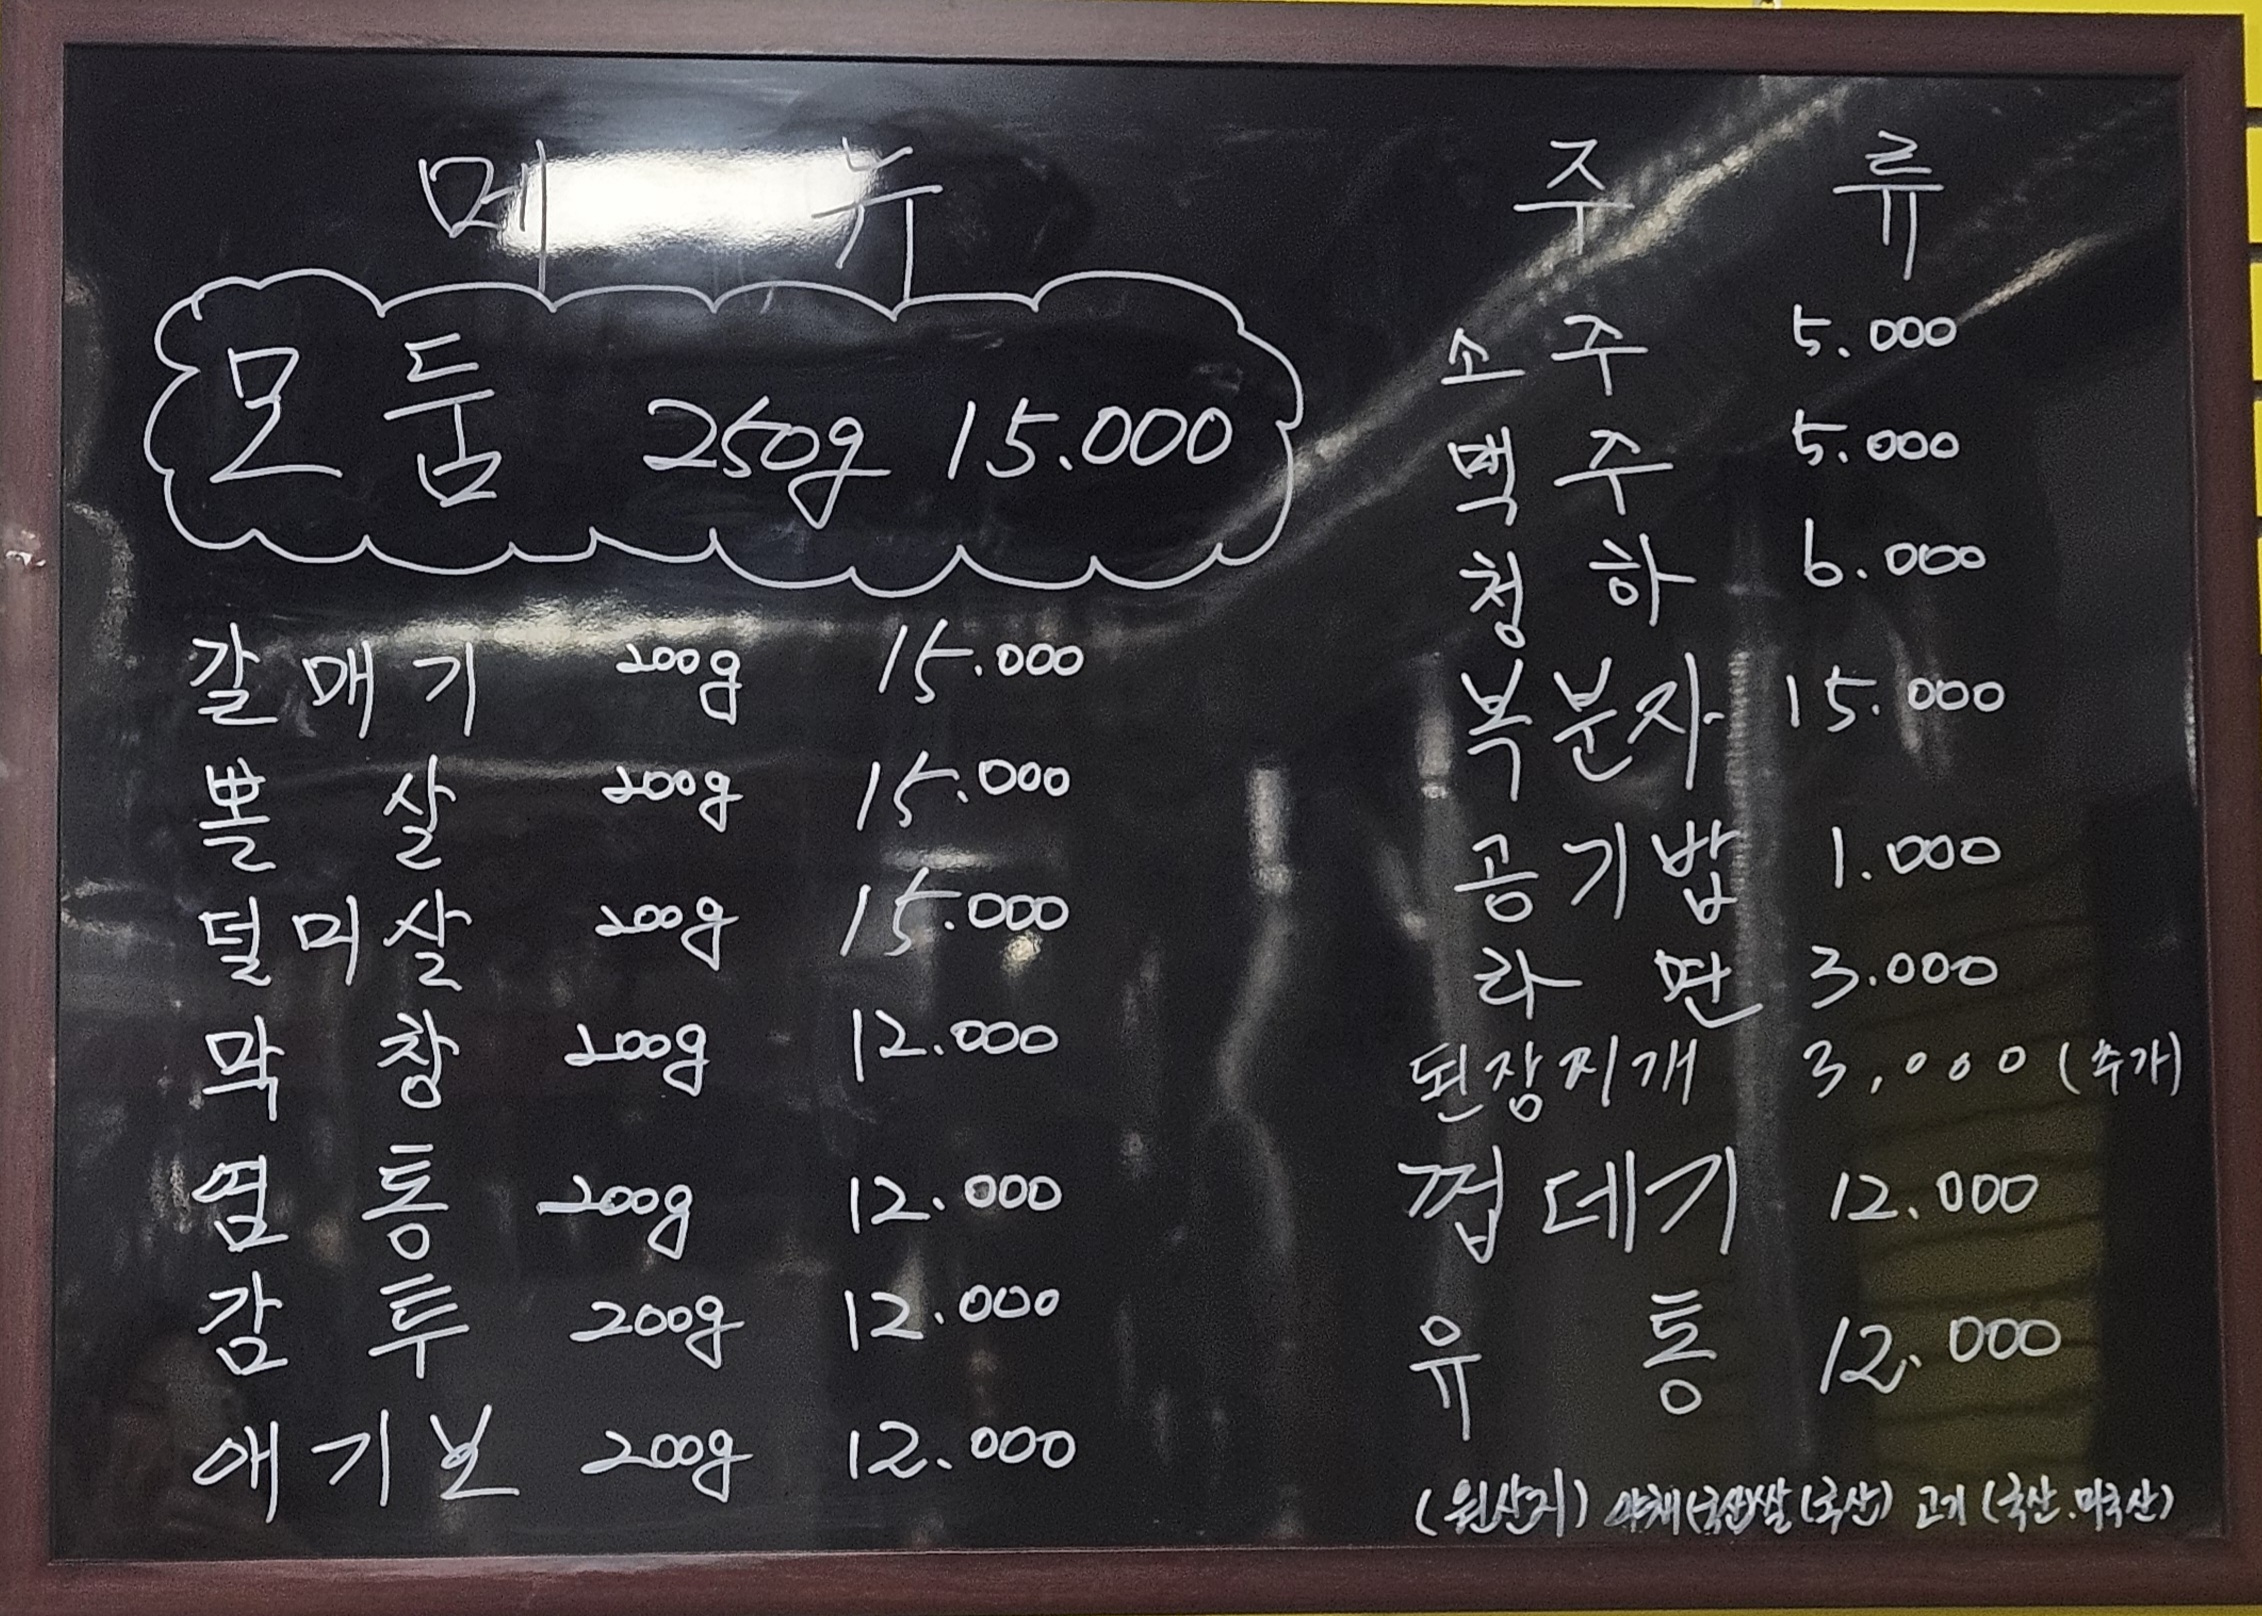 메뉴
모둠 250g 15.000
갈매기 200g 15.000
뽈살 200g 15.000
덜미살 200g 15.000
막창 200g 12.000
염통 200g 12.000
감투 200g 12.000
애기보 200g 12.000
주류
소주 5.000
맥주 5.000
청하 6.000
복분자 15.000
공기밥 1.000
라면 3.000
된장찌개 3,000 (추가)
껍데기 12.000
유통 12.000
(원산지) 야채(국산)쌀(국산) 고기(국산.미국산)